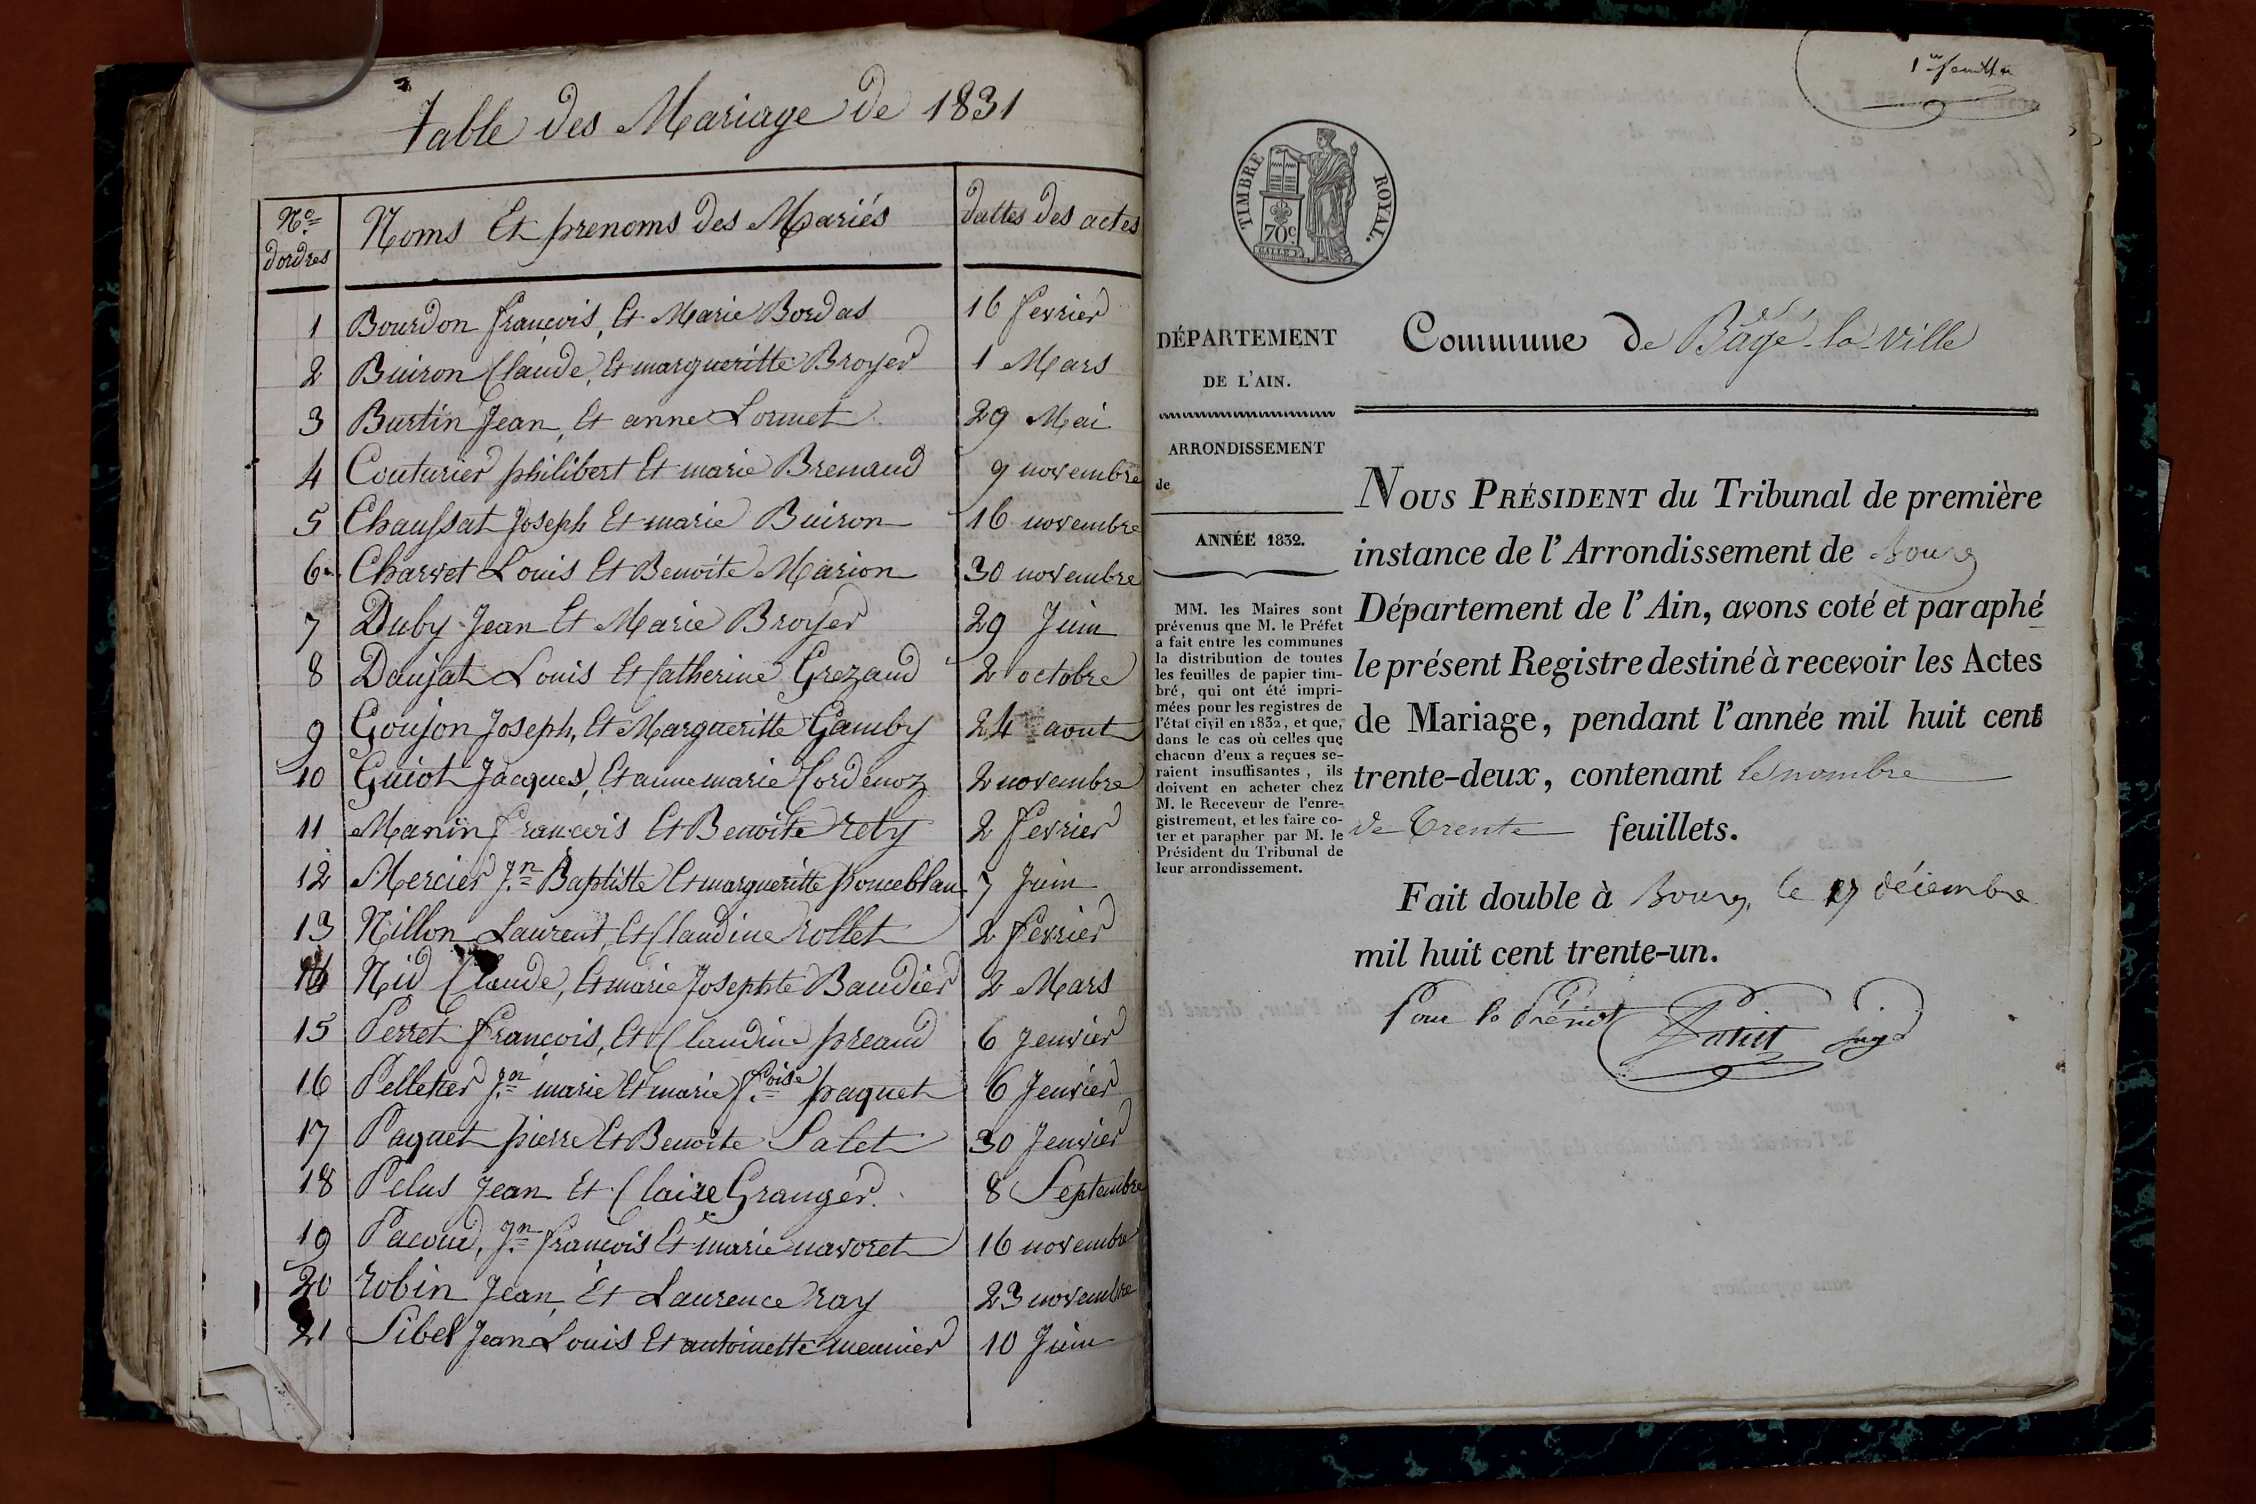 Table des Mariage de 1831
Nº dordres
Noms Et prenoms des Mariés
dattes des actes
1 Bourdon françois, Et Marie Bordas 16 fevrier
2 Buiron Claude, Et margueritte Broyer 1 Mars
3 Burtin Jean, Et anne Lornet 29 Mai
4 Couturier philibert Et marie Brenaud 9 novembre
5 Chaussat Joseph Et marie Buiron 16 novembre
6 Charvet Louis Et Benoite Marion 30 novembre
7 Duby Jean Et Marie Broyer 29 Juin
8 Daujat Louis Et Catherine Grezaud 2 octobre
9 Goujon Joseph, Et Margueritte Gamby 24 aout
10 Guiot Jacques, Et anne marie Cordenoz 2 novembre
11 Manin françois Et Benoite rety 2 fevrier
12 Mercier Jn Baptiste Et margueritte ponceblan 7 Juin
13 Nillon Laurent, Et Claudine rollet 2 fevrier
14 Nid Claude, Et marie Josephte Baudier 2 Mars
15 Perret françois, Et Claudine preaud 6 Jenvier
16 Pelletier Jn marie Et marie foise paquet 6 Jenvier
17 Paquet pierre Et Benoite Salet 30 Jenvier
18 Pelus Jean Et Claire Granger. 8 Septembre
19 Pacoud, Jn françois Et marie navoret 16 novembre
20 robin Jean Et Laurence ray 23 novembre
21 Sibel Jean Louis Et antoinette meunier 10 Juin
1er feuillet
TIMBRE ROYAL.
70c
DÉPARTEMENT
DE L'AIN.
ARRONDISSEMENT
de
ANNÉE 1832.
MM. les Maires sont
prévenus que M. le Préfet
a fait entre les communes
la distribution de toutes
les feuilles de papier tim-
bré, qui ont été impri-
mées pour les registres de
l'état civil en 1832, et que,
dans le cas où celles que
chacun d'eux a reçues se-
raient insuffisantes, ils
doivent en acheter chez
M. le Receveur de l'enre-
gistrement, et les faire co-
ter et parapher par M. le
Président du Tribunal de
leur arrondissement.
Commune de Bâgé-la-ville
NOUS PRÉSIDENT du Tribunal de première
instance de l'Arrondissement de Bourg
Département de l'Ain, avons coté et paraphé
le présent Registre destiné à recevoir les Actes
de Mariage, pendant l'année mil huit cent
trente-deux, contenant le nombre
de Trente feuillets.
Fait double à Bourg, le 17 décembre
mil huit cent trente-un.
Pour le Présidt
juge